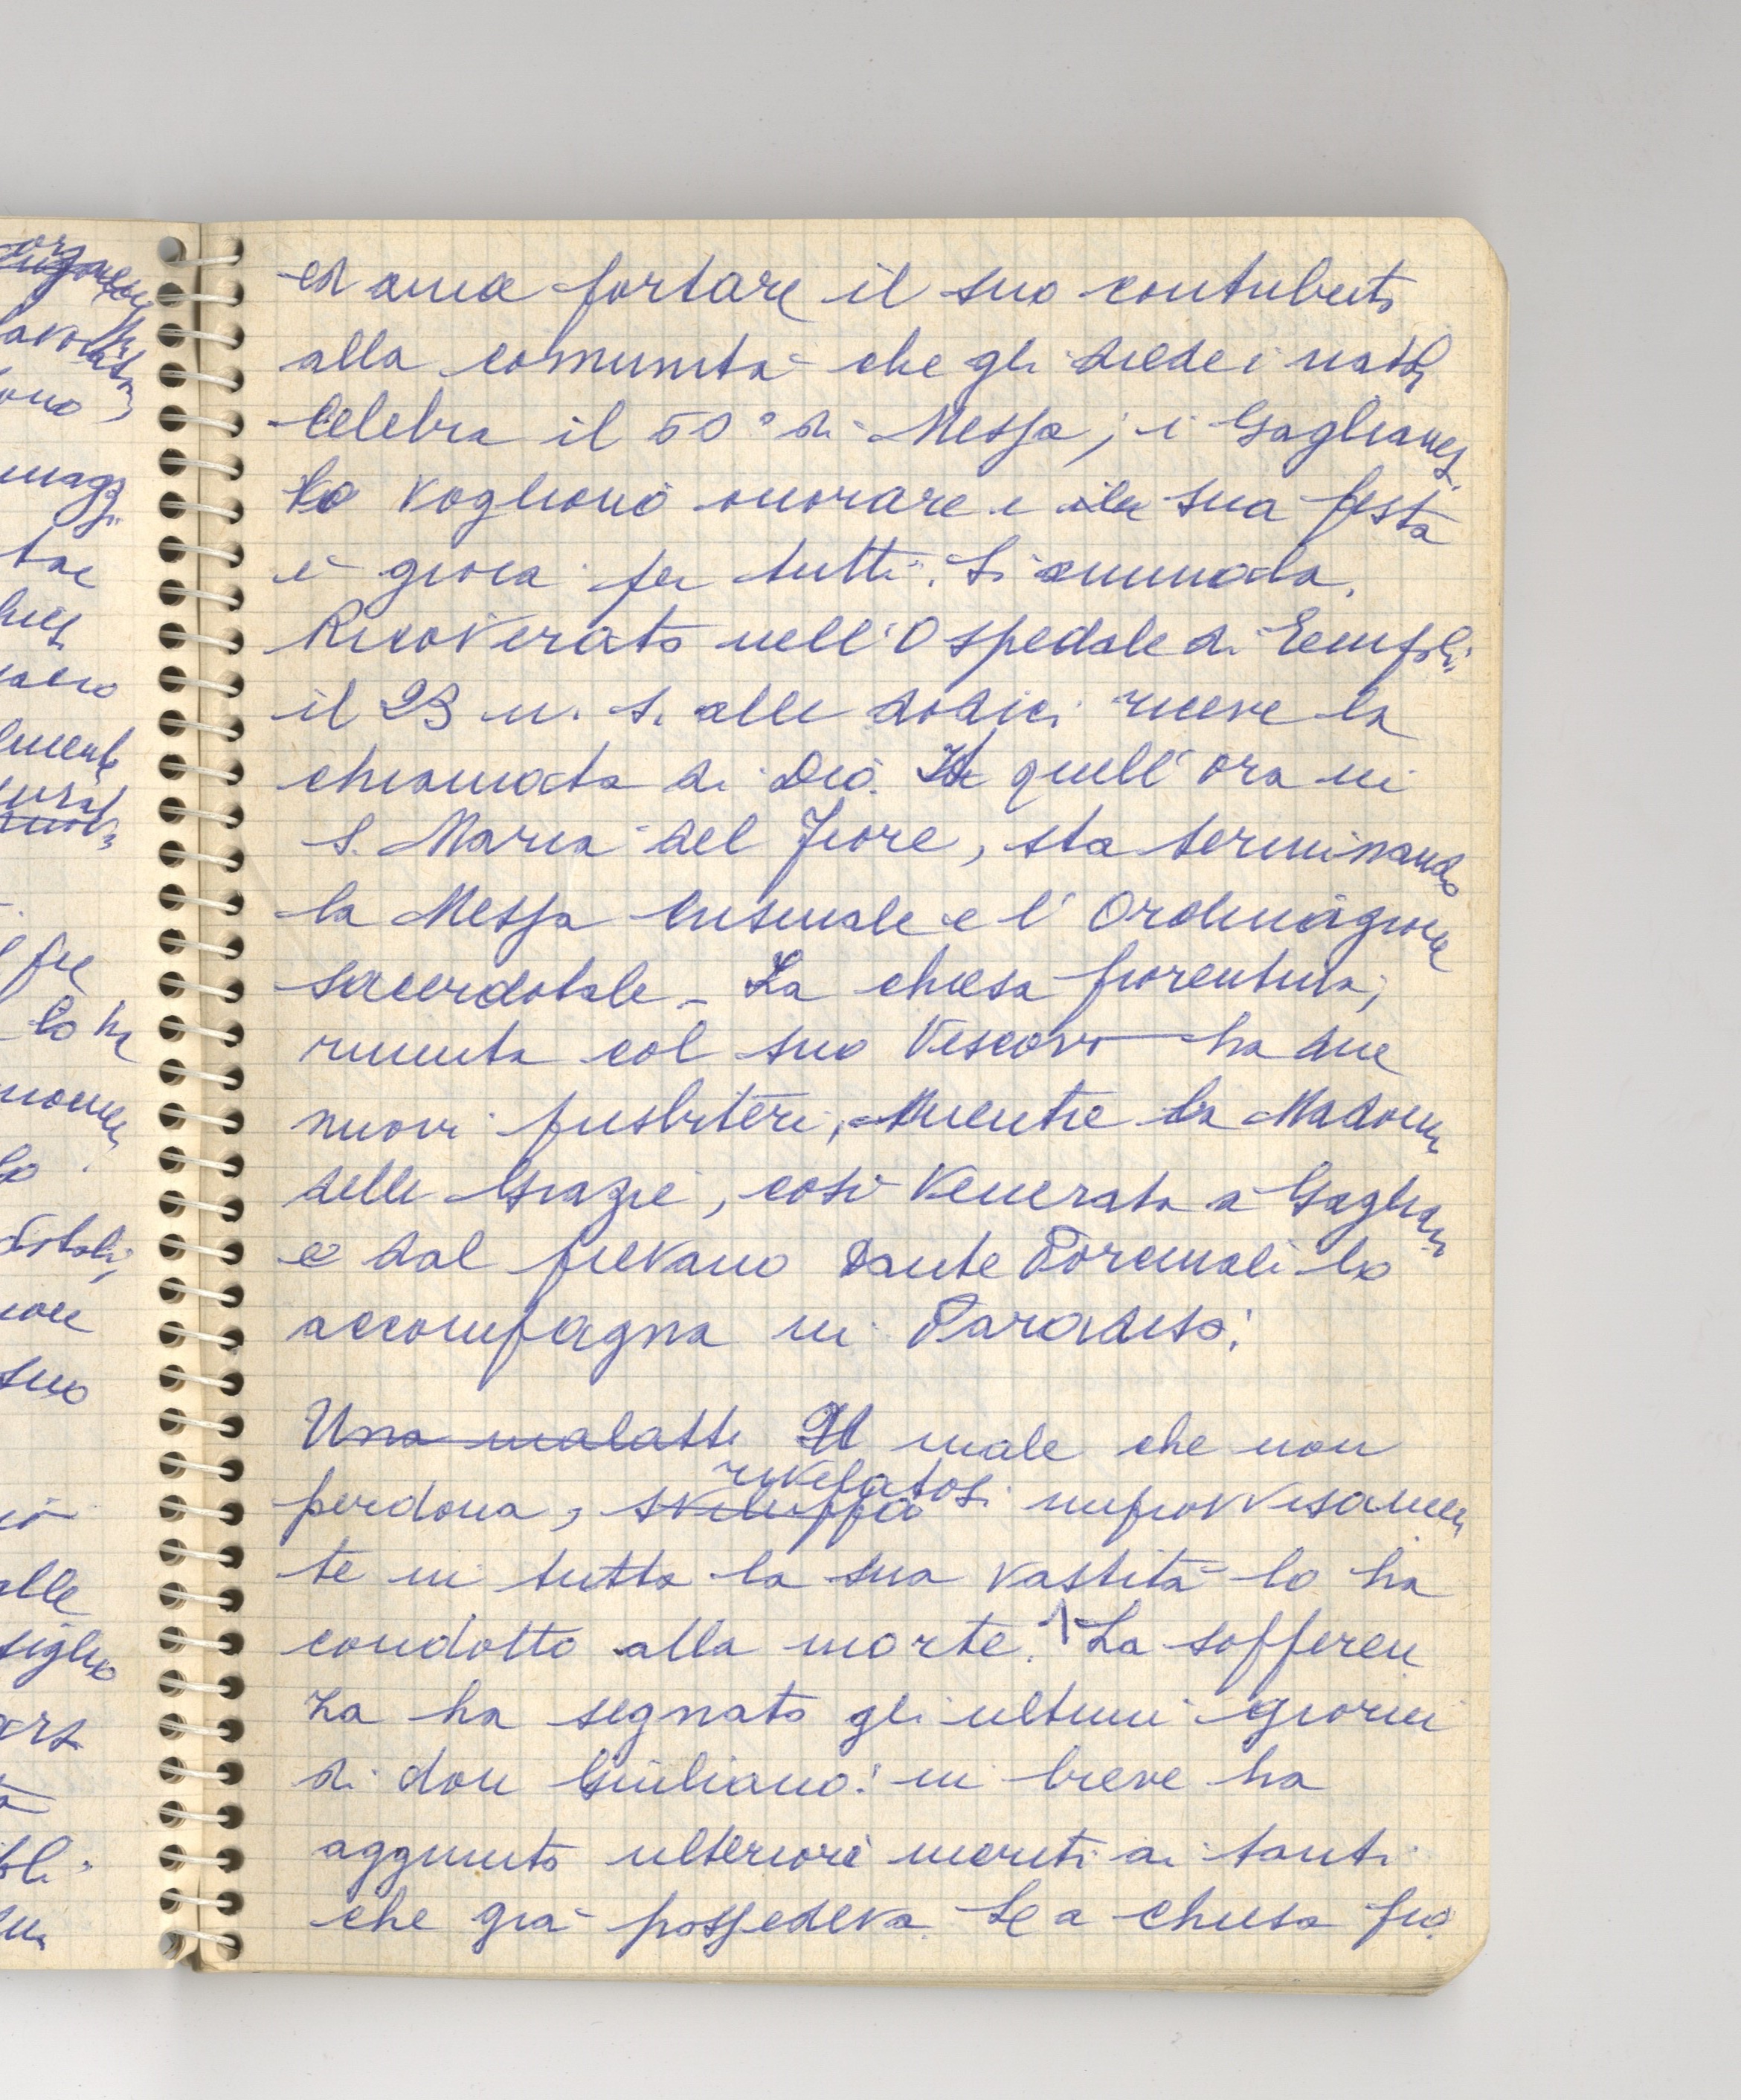 ed ama portare il suo contributo
alla comunità che gli diede i natali,
Celebra il 50° di Messa; i Gaglianesi
lo vogliono onorare e la sua festa
è gioia per tutti. Si ammala.
Ricoverato nell'Ospedale di Empoli
il 23 u. s. alle dodici riceve la
chiamata di Dio. In quell'ora in
S. Maria del Fiore, sta terminando
la Messa Crismale e l'Ordinazione
sacerdotale - La chiesa fiorentina,
riunita col suo Vescovo ha due
nuovi presbiteri, mentre la Madonna
delle Grazie, così Venerata a Gagliano
e dal pievano Dante lo
accompagna in Paradiso.
Una malatti Il male che non
rivelatosi
perdona, sviluppa improvvisamen
te in tutta la sua vastità lo ha
condotto alla morte. La sofferen
za ha segnato gli ultimi giorni
di don Giuliano: in breve ha
aggiunto ulteriori meriti ai tanti
che già possedeva. La chiesa fio